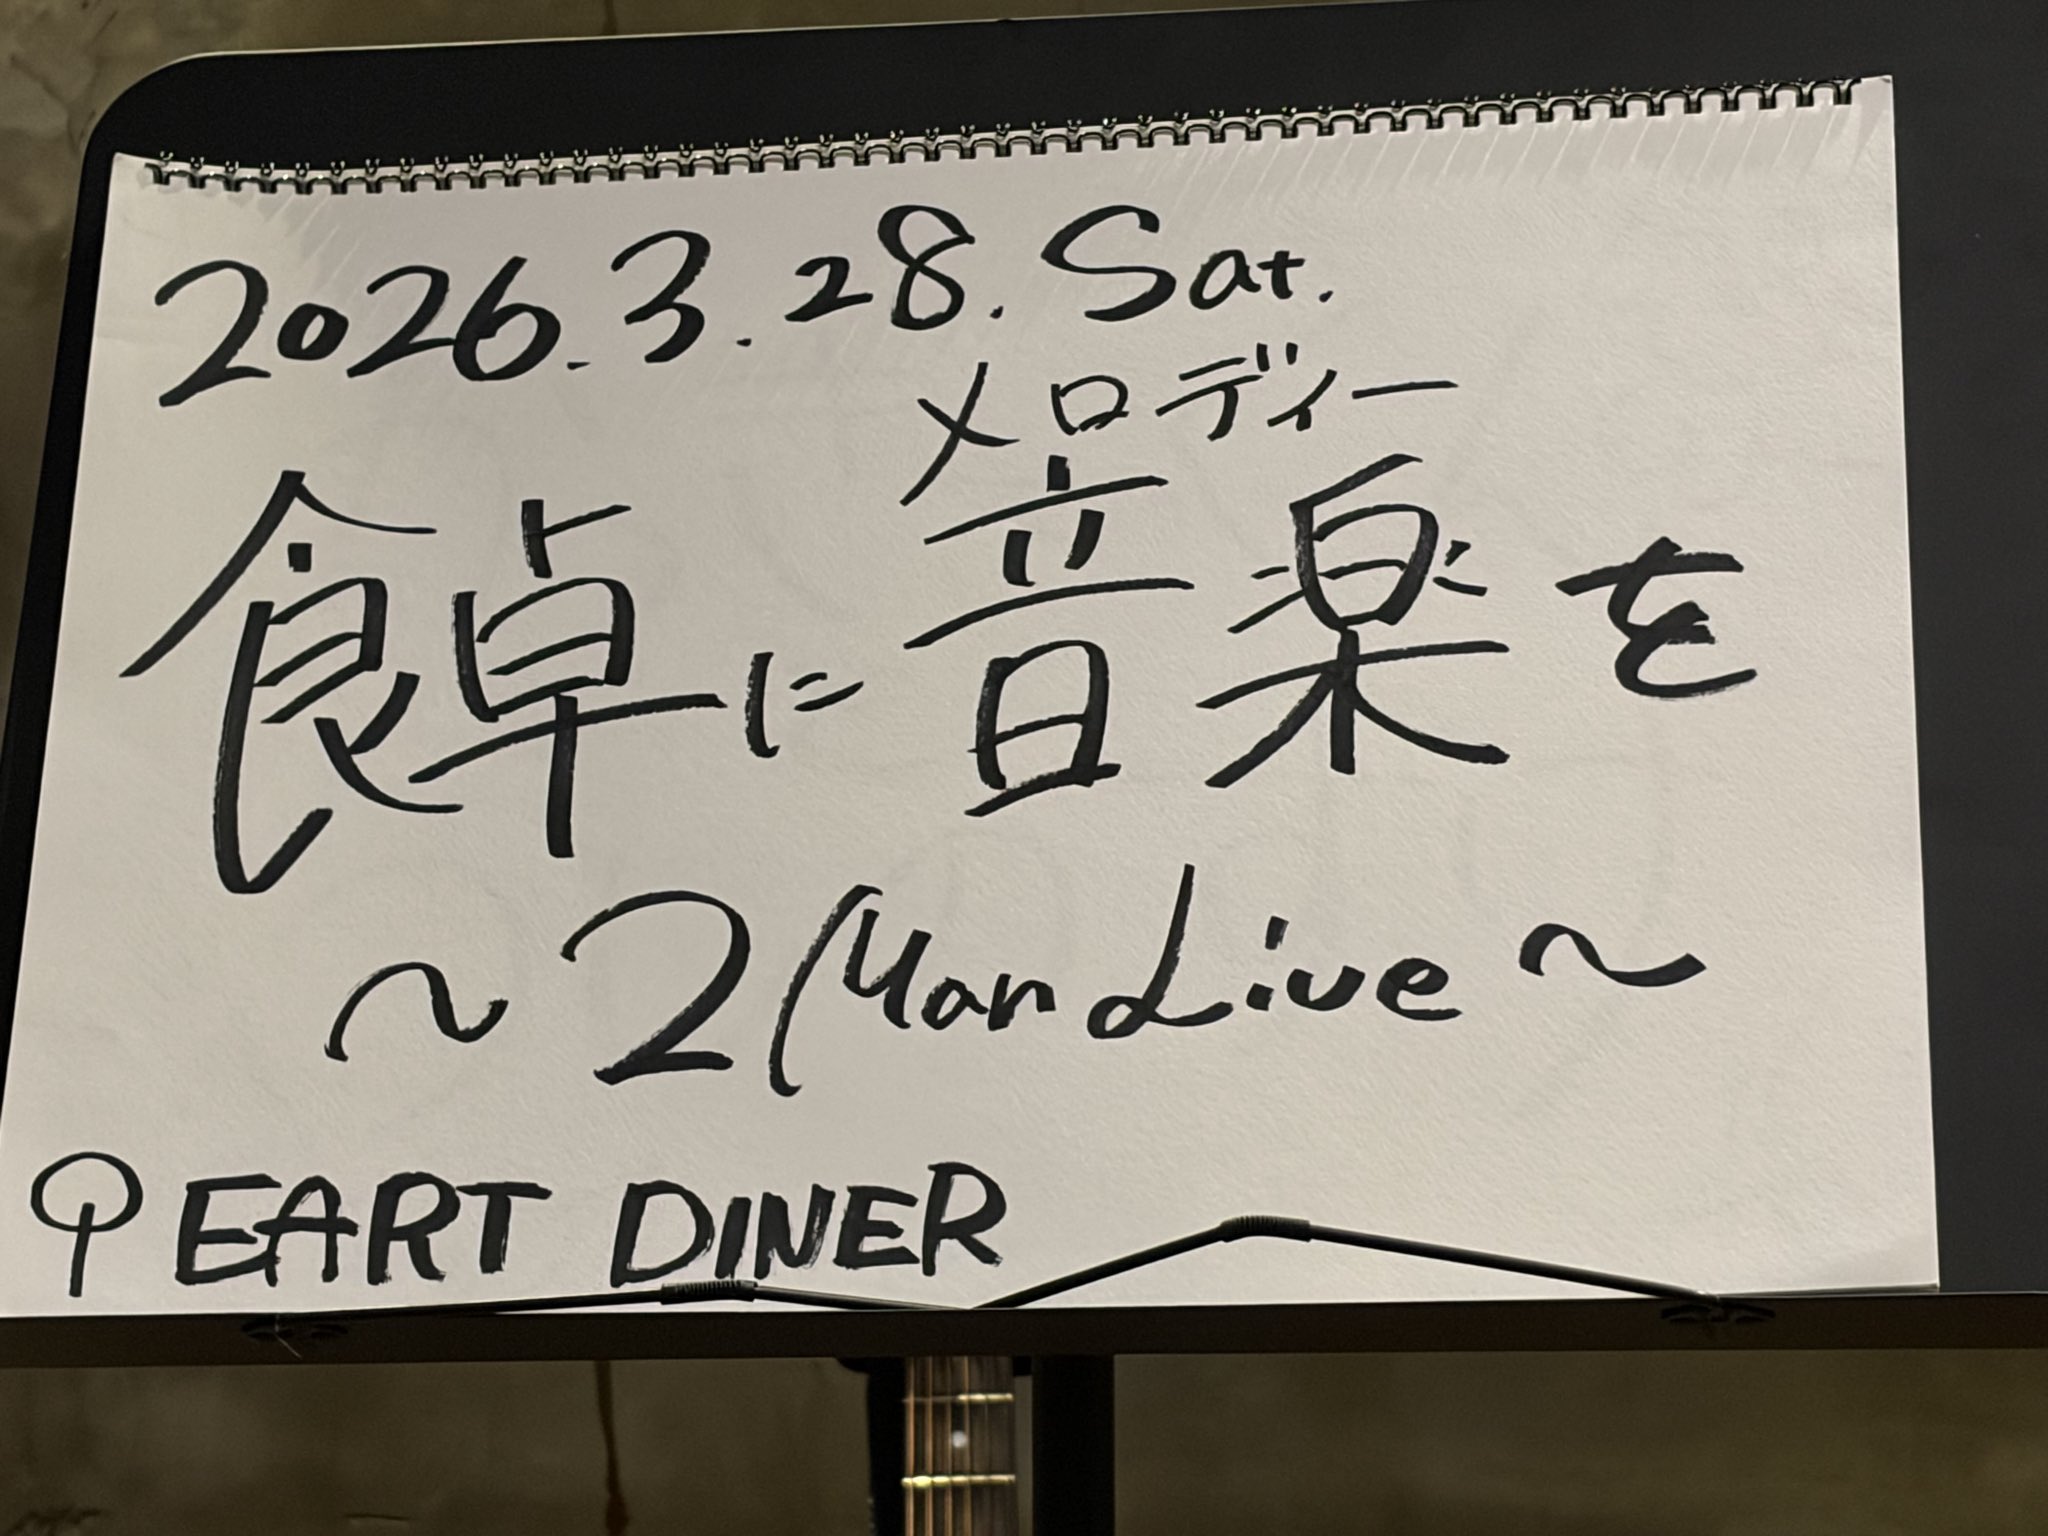 2026.3.28.Sat.
メロディー
食卓に音楽を
～2Man Live～
EART DINER